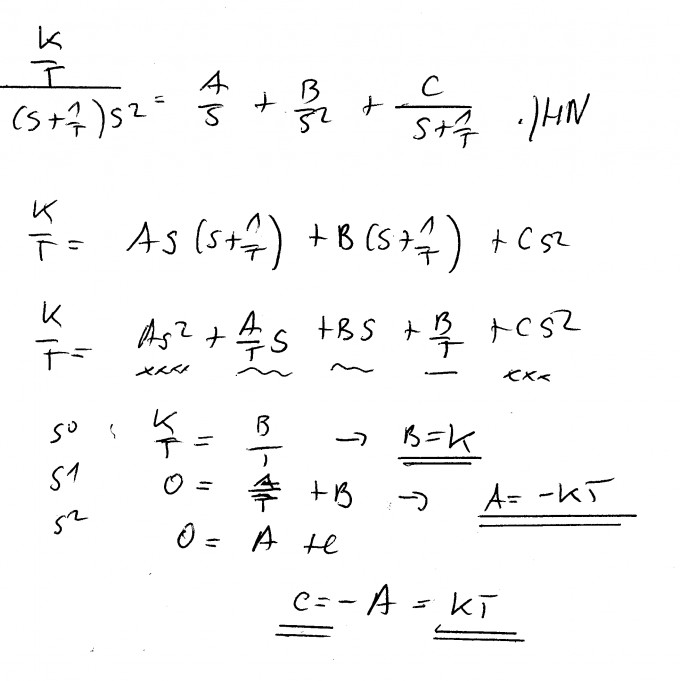 K/T / (s+1/T)s² = A/s + B/s² + C/(s+1/T) ·)HN
K/T = As(s+1/T) + B(s+1/T) + Cs²
K/T = As² + A/T s + Bs + B/T + Cs²
s⁰ : K/T = B/T → B=K
s1 0 = A/T + B → A= -KT
s² 0 = A + C
C = - A = KT